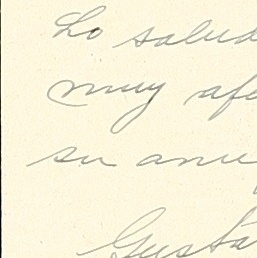 Lo salud
muy afe
su ami
Gusta